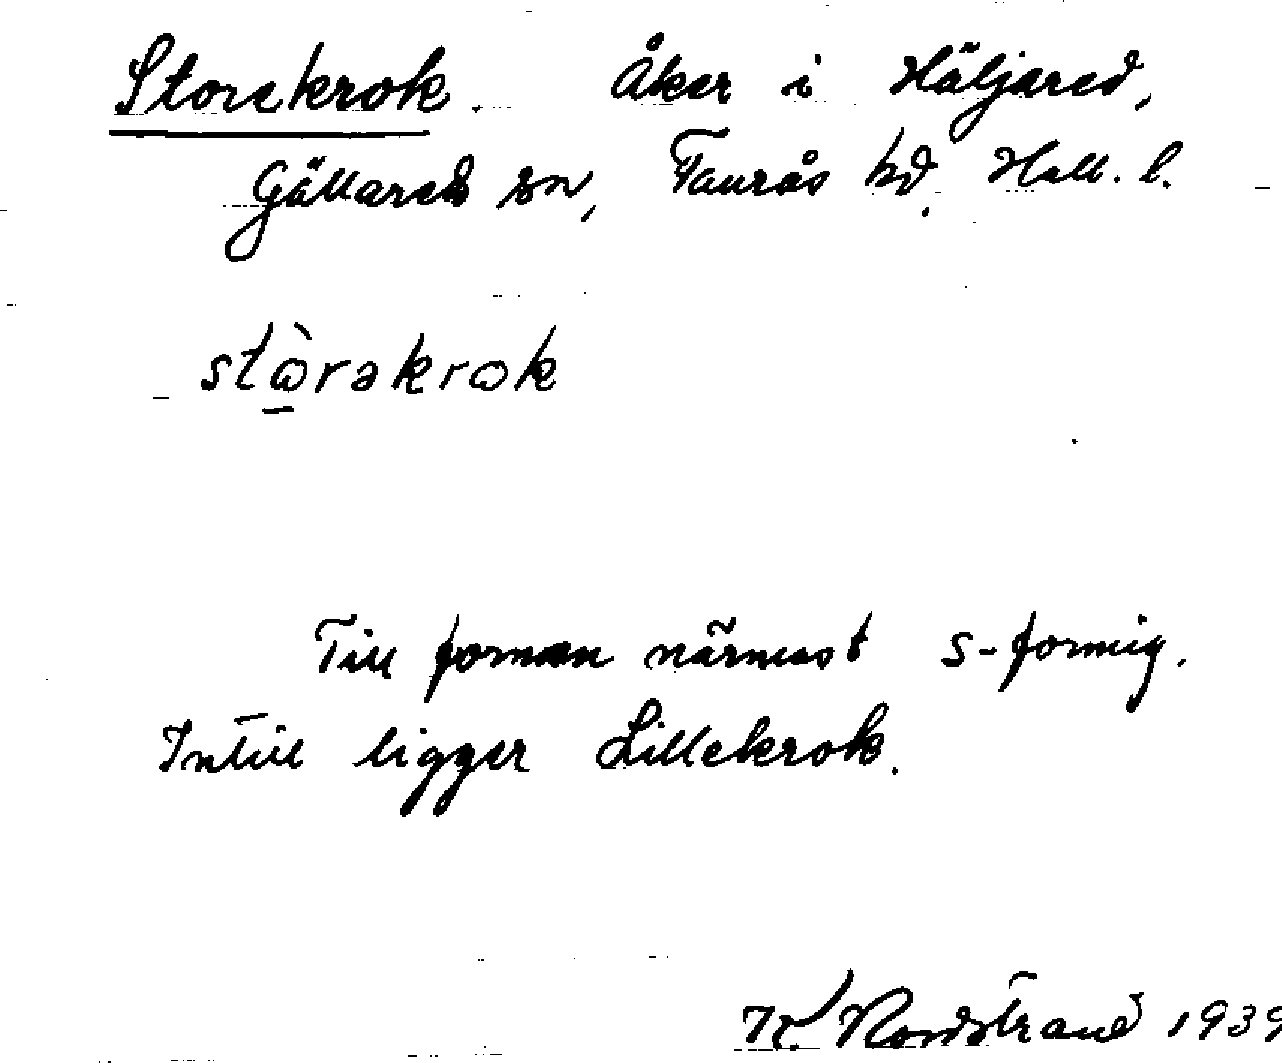 Storekrok. Åker i Häljared,
Gällared sn, Faurås hd. Hall. l.
stὼ̲rəkrωk
Till formen närmast s-formig.
Intill ligger Lillekrok.
K. Nordstrand 1939